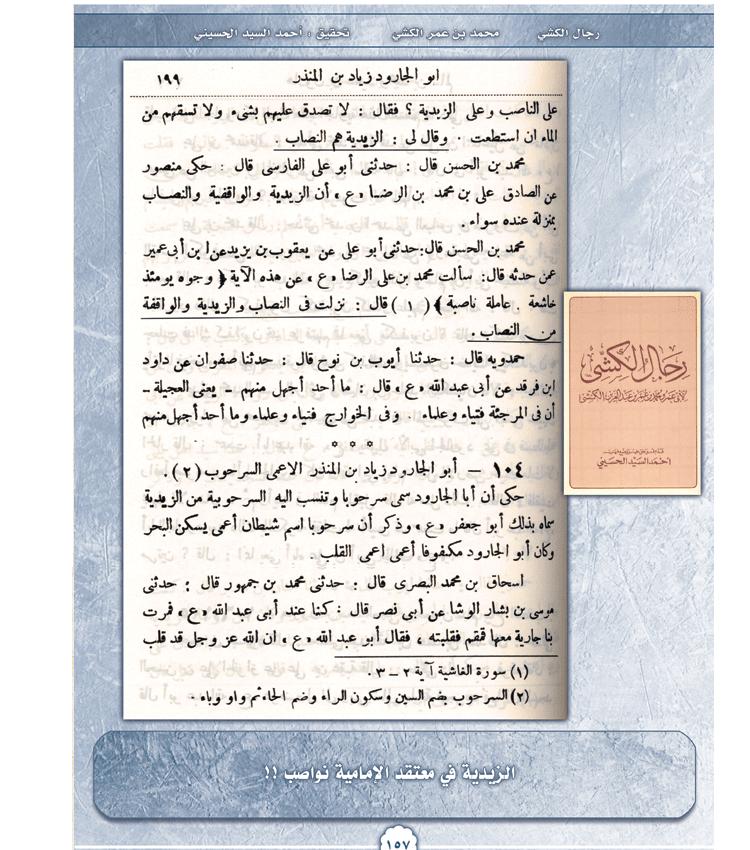 رجال الكشي محمد بن عمر الكشي تحقيق : أحمد السيد الحسيني
ابو الجارود زياد بن المنذر ١٩٩
على الناصب وعلى الزيدية ؟ فقال : لا تصدق عليهم بشىء ولا تسقهم من
الماء ان استطعت . وقال لى : الزيدية هم النصاب .
محمد بن الحسن قال : حدثنى أبو على الفارسى قال : حكى منصور
عن الصادق على بن محمد بن الرضا «ع» أن الزيدية والواقفية والنصاب
بمنزلة عنده سواء .
محمد بن الحسن قال: حدثنى أبو على عن يعقوب بن يزيد عن ابن أبى عمير
عمن حدثه قال: سألت محمد بن على الرضا «ع» عن هذه الآية ﴿ وجوه يومئذ
خاشعة . عاملة ناصبة ﴾ (١) قال : نزلت فى النصاب والزيدية والواقفة
من النصاب .
حمدويه قال : حدثنا أيوب بن نوح قال : حدثنا صفوان عن داود
ابن فرقد عن أبى عبد الله «ع» قال : ما أحد أجهل منهم - يعنى العجيلة -
أن فى المرجئة فتياء وعلماء . وفى الخوارج فتياء وعلماء وما أحد أجهل منهم
* * *
١٠٤ – أبو الجارود زياد بن المنذر الاعمى السرحوب (٢) .
حكى أن أبا الجارود سمى سرحوبا وتنسب اليه السرحوبية من الزيدية
سماه بذلك أبو جعفر «ع» وذكر أن سرحوبا اسم شيطان أعمى يسكن البحر
وكان أبو الجارود مكفوفا أعمى اعمى القلب .
اسحاق بن محمد البصرى قال : حدثنى محمد بن جمهور قال : حدثنى
موسى بن بشار الوشا عن أبى نصر قال : كنا عند أبى عبد الله «ع» فمرت
بنا جارية معها قمقم فقلبته ، فقال أبو عبد الله «ع» ان الله عز وجل قد قلب
(١) سورة الغاشية آية ٢ – ٣ .
(٢) السرحوب بضم السين وسكون الراء وضم الحاء ثم واو وباء .
رجال الكشى
لأبى عمرو محمد بن عمر بن عبد العزيز الكشى
احمد السيد الحسينى
الزيدية في معتقد الإمامية نواصب !!
١٥٧